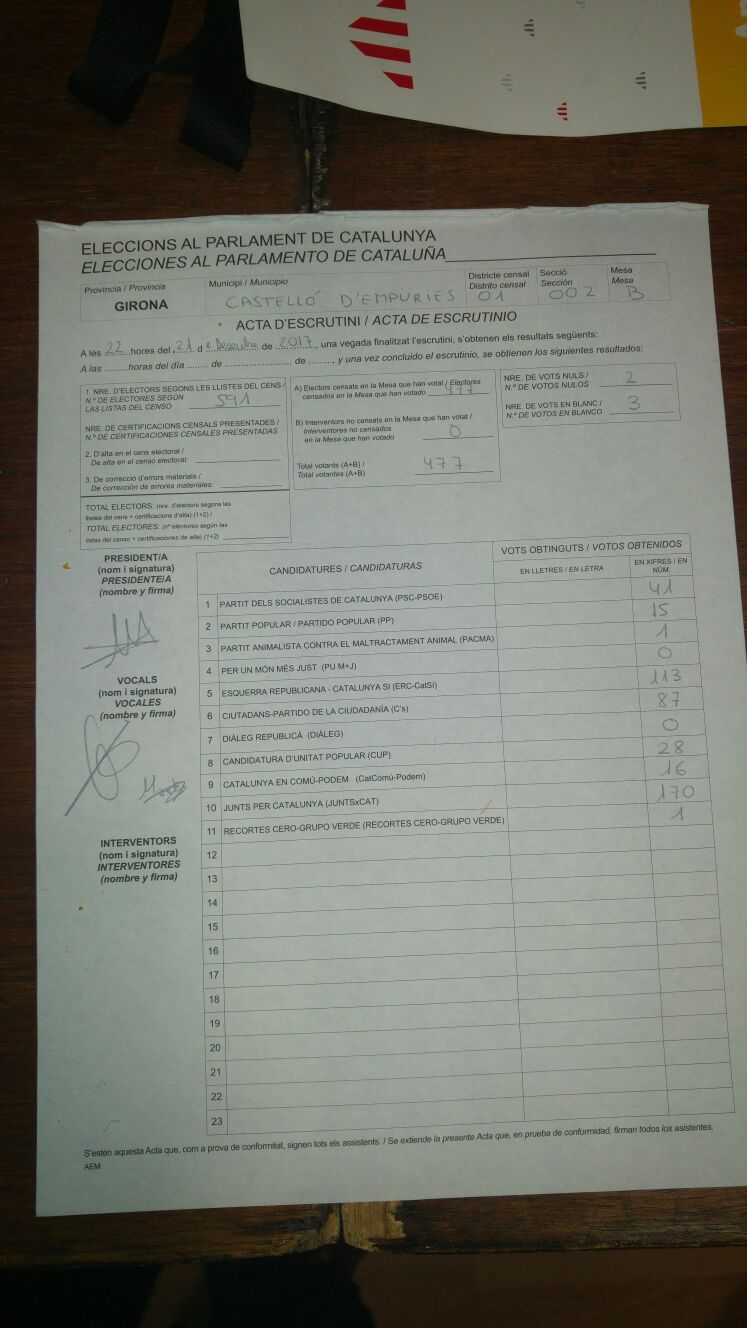 ELECCIONS AL PARLAMENT DE CATALUNYA
ELECCIONES AL PARLAMENTO DE CATALUÑA
Província / Provincia
GIRONA
Municipi / Municipio
CASTELLÓ D'EMPÚRIES
Districte censal
Distrito censal
01
Secció
Sección
002
Mesa
Mesa
B
ACTA D'ESCRUTINI / ACTA DE ESCRUTINIO
A les 22 hores del 21 de Desembre de 2017, una vegada finalitzat l'escrutini, s'obtenen els resultats següents:
A las .........horas del día ........ de ........................ de ........., y una vez concluido el escrutinio, se obtienen los siguientes resultados:
1. NRE. D'ELECTORS SEGONS LES LLISTES DEL CENS /
N.º DE ELECTORES SEGÚN
LAS LISTAS DEL CENSO 591
NRE. DE CERTIFICACIONS CENSALS PRESENTADES /
N.º DE CERTIFICACIONES CENSALES PRESENTADAS
2. D'alta en el cens electoral /
De alta en el censo electoral:
3. De correcció d'errors materials /
De corrección de errores materiales:
TOTAL ELECTORS: (nre. d'electors segons les
llistes del cens + certificacions d'alta) (1+2) /
TOTAL ELECTORES: (nº electores según las
listas del censo + certificaciones de alta) (1+2)
A) Electors censats en la Mesa que han votat / Electores
censados en la Mesa que han votado 477
B) Interventors no censats en la Mesa que han votat /
Interventores no censados
en la Mesa que han votado 0
Total votants (A+B) /
Total votantes (A+B) 477
NRE. DE VOTS NULS /
N.º DE VOTOS NULOS 2
NRE. DE VOTS EN BLANC /
N.º DE VOTOS EN BLANCO 3
PRESIDENT/A
(nom i signatura)
PRESIDENTE/A
(nombre y firma)
VOCALS
(nom i signatura)
VOCALES
(nombre y firma)
INTERVENTORS
(nom i signatura)
INTERVENTORES
(nombre y firma)
CANDIDATURES / CANDIDATURAS
VOTS OBTINGUTS / VOTOS OBTENIDOS
EN LLETRES / EN LETRA
EN XIFRES / EN
NÚM.
1 PARTIT DELS SOCIALISTES DE CATALUNYA (PSC-PSOE) 41
2 PARTIT POPULAR / PARTIDO POPULAR (PP) 15
3 PARTIT ANIMALISTA CONTRA EL MALTRACTAMENT ANIMAL (PACMA) 1
4 PER UN MÓN MÉS JUST (PU M+J) 0
5 ESQUERRA REPUBLICANA - CATALUNYA SI (ERC-CatSí) 113
6 CIUTADANS-PARTIDO DE LA CIUDADANÍA (C's) 87
7 DIÀLEG REPUBLICÀ (DIÀLEG) 0
8 CANDIDATURA D'UNITAT POPULAR (CUP) 28
9 CATALUNYA EN COMÚ-PODEM (CatComú-Podem) 16
10 JUNTS PER CATALUNYA (JUNTSxCAT) 170
11 RECORTES CERO-GRUPO VERDE (RECORTES CERO-GRUPO VERDE) 1
12
13
14
15
16
17
18
19
20
21
22
23
S'estén aquesta Acta que, com a prova de conformitat, signen tots els assistents. / Se extiende la presente Acta que, en prueba de conformidad, firman todos los asistentes.
AEM